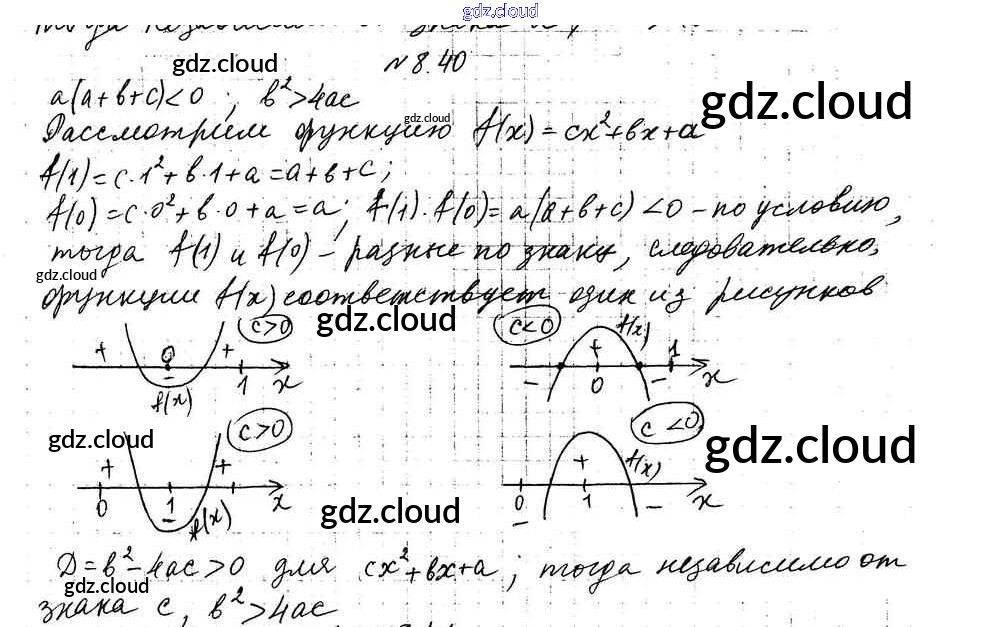 gdz.cloud
gdz.cloud
№ 8.40
a(a+b+c)<0 ; b²>4ac
gdz.cloud
Рассмотрим функцию f(x)=cx²+bx+a
gdz.cloud
f(1)=c·1²+b·1+a=a+b+c;
f(0)=c·0²+b·0+a=a; f(1)·f(0)=a(a+b+c)<0 - по условию,
тогда f(1) и f(0) - разные по знаку, следовательно,
gdz.cloud
функции f(x) соответствует один из рисунков
gdz.cloud
c>0
c<0 f(x)
+ 0 + + 1
- 1 x - 0 - x
f(x)
c>0
c<0
gdz.cloud
gdz.cloud
+ + + f(x)
0 1 x 0 1 x
- f(x) - -
gdz.cloud
D=b²-4ac>0 для cx²+bx+a ; тогда независимо от
gdz.cloud
знака c, b²>4ac